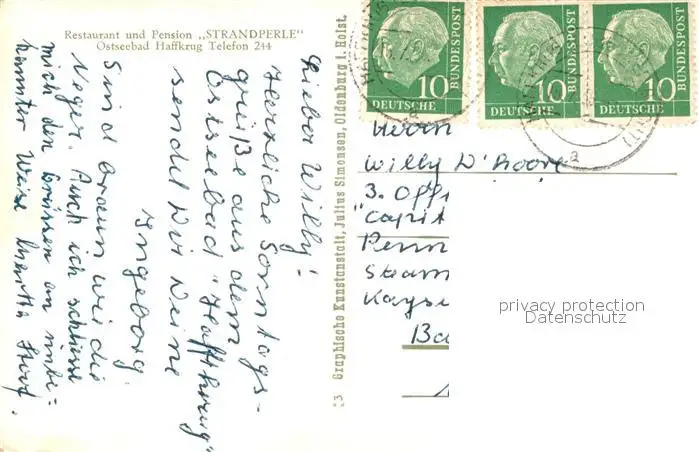 Restaurant und Pension „STRANDPERLE"
Ostseebad Haffkrug Telefon 244
Lieber Willy!
Herzliche Sonntags-
grüße aus dem
Ostseebad "Haffkrug"
sendet Dir Deine
Ingeborg.
Sind braun wie die
Neger. Auch ich schliesse
mich den Grüssen an unbe=
kannter Weise
Graphische Kunstanstalt, Julius Simonsen, Oldenburg i. Holst.
10
DEUTSCHE
BUNDESPOST
10
DEUTSCHE
BUNDESPOST
10
DEUTSCHE
BUNDESPOST
a
a
Herrn
Willy D'hoore
3. Offi
"Capit
Penn
Steam
Kayse
Ba
privacy protection
Datenschutz